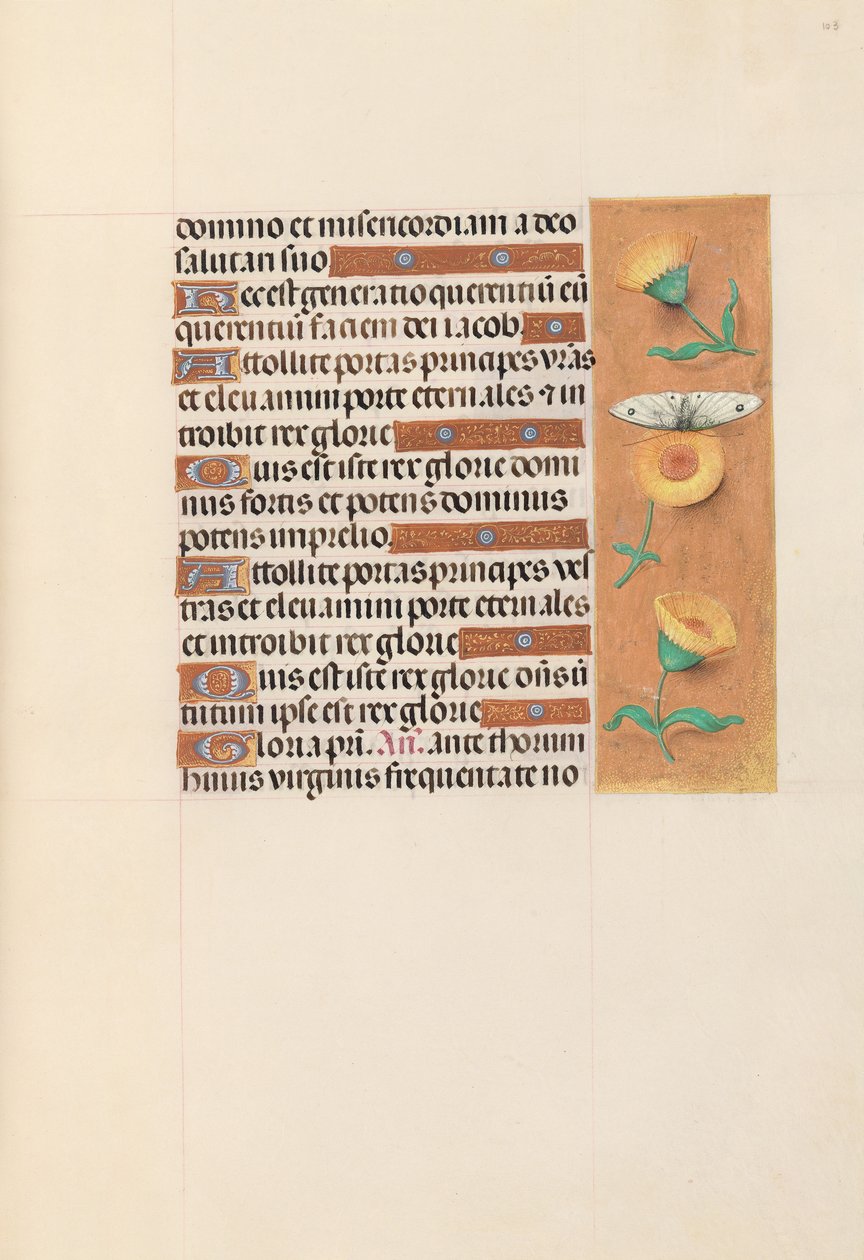 103
domino et misericordiam a deo
salutari suo
Hec est generatio querentiū eū
querentiū faciem dei iacob.
Attollite portas principes vr̄as
et eleuamini porte eternales ⁊ in
troibit rex glorie
Quis est iste rex glorie domi
nus fortis et potens dominus
potens in prelio.
Attollite portas principes ves
tras et eleuamini porte eternales
et introibit rex glorie
Quis est iste rex glorie dn̄s ũ
tutum ipse est rex glorie
Gloria pr̄i. An̄. ante thorum
huius virginis frequentate no